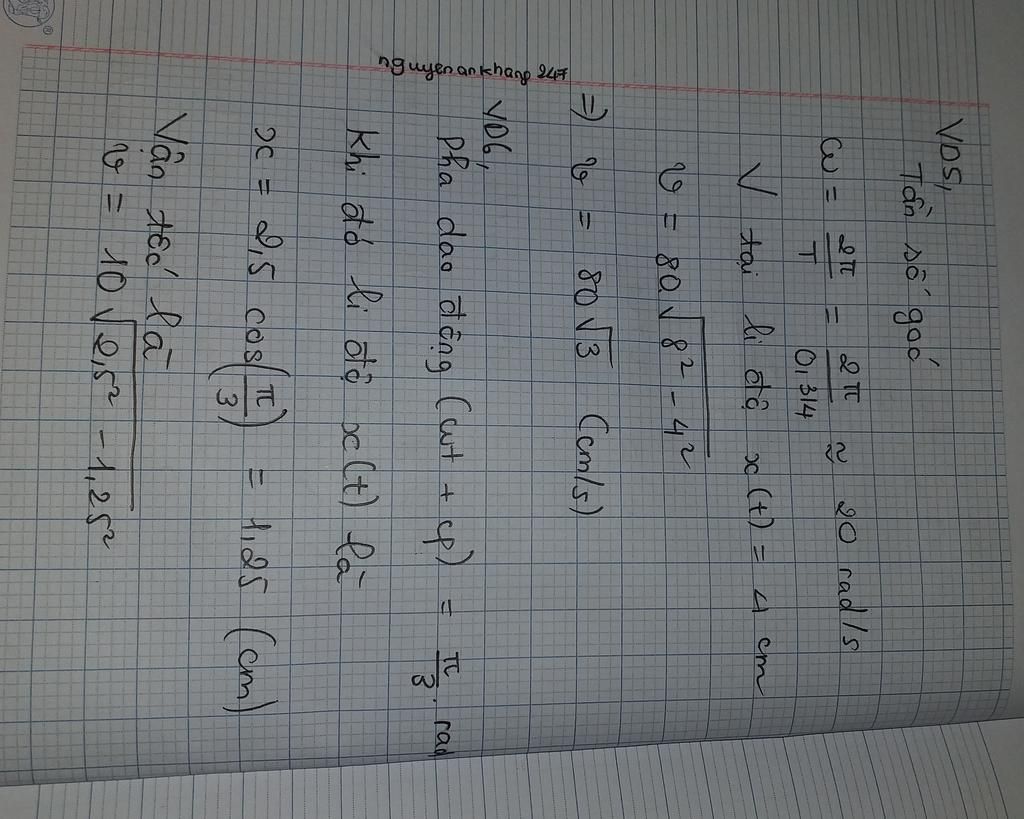 nguyenankhang 247
VD5,
Tần số góc
ω = 2π/T = 2π/0,314 ≈ 20 rad/s
V tại li độ x(t) = 4 cm
v = 80√(8² - 4²)
=> v = 80√3 (cm/s)
VD6,
Pha dao động (ωt + φ) = π/3 rad
Khi đó li độ x(t) là
x = 2,5 cos(π/3) = 1,25 (cm)
Vận tốc là
v = 10√(2,5² - 1,25²)